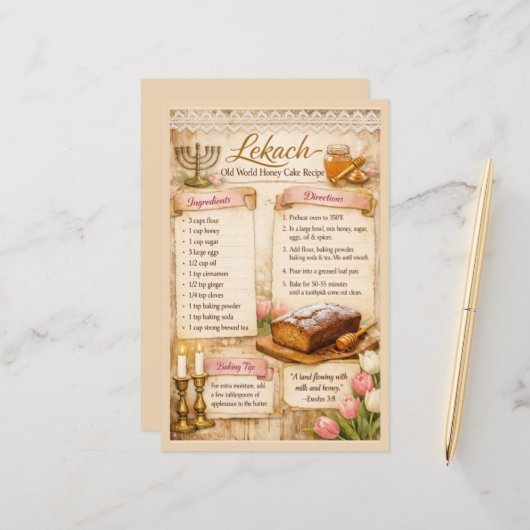 Lekach
Old World Honey Cake Recipe
Ingredients
• 3 cups flour
• 1 cup honey
• 1 cup sugar
• 3 large eggs
• 1/2 cup oil
• 1 tsp cinnamon
• 1/2 tsp ginger
• 1/4 tsp cloves
• 1 tsp baking powder
• 1 tsp baking soda
• 1 cup strong brewed tea
Directions
1. Preheat oven to 350°F.
2. In a large bowl, mix honey, sugar,
eggs, oil & spices.
3. Add flour, baking powder,
baking soda & tea. Mix until smooth.
4. Pour into a greased loaf pan.
5. Bake for 50–55 minutes
until a toothpick come out clean.
Baking Tip
For extra moisture, add
a few tablespoons of
applesauce to the batter.
"A land flowing with
milk and honey."
—Exodus 3:8